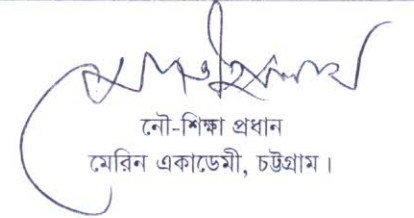 নৌ-শিক্ষা প্রধান
মেরিন একাডেমী, চট্টগ্রাম।